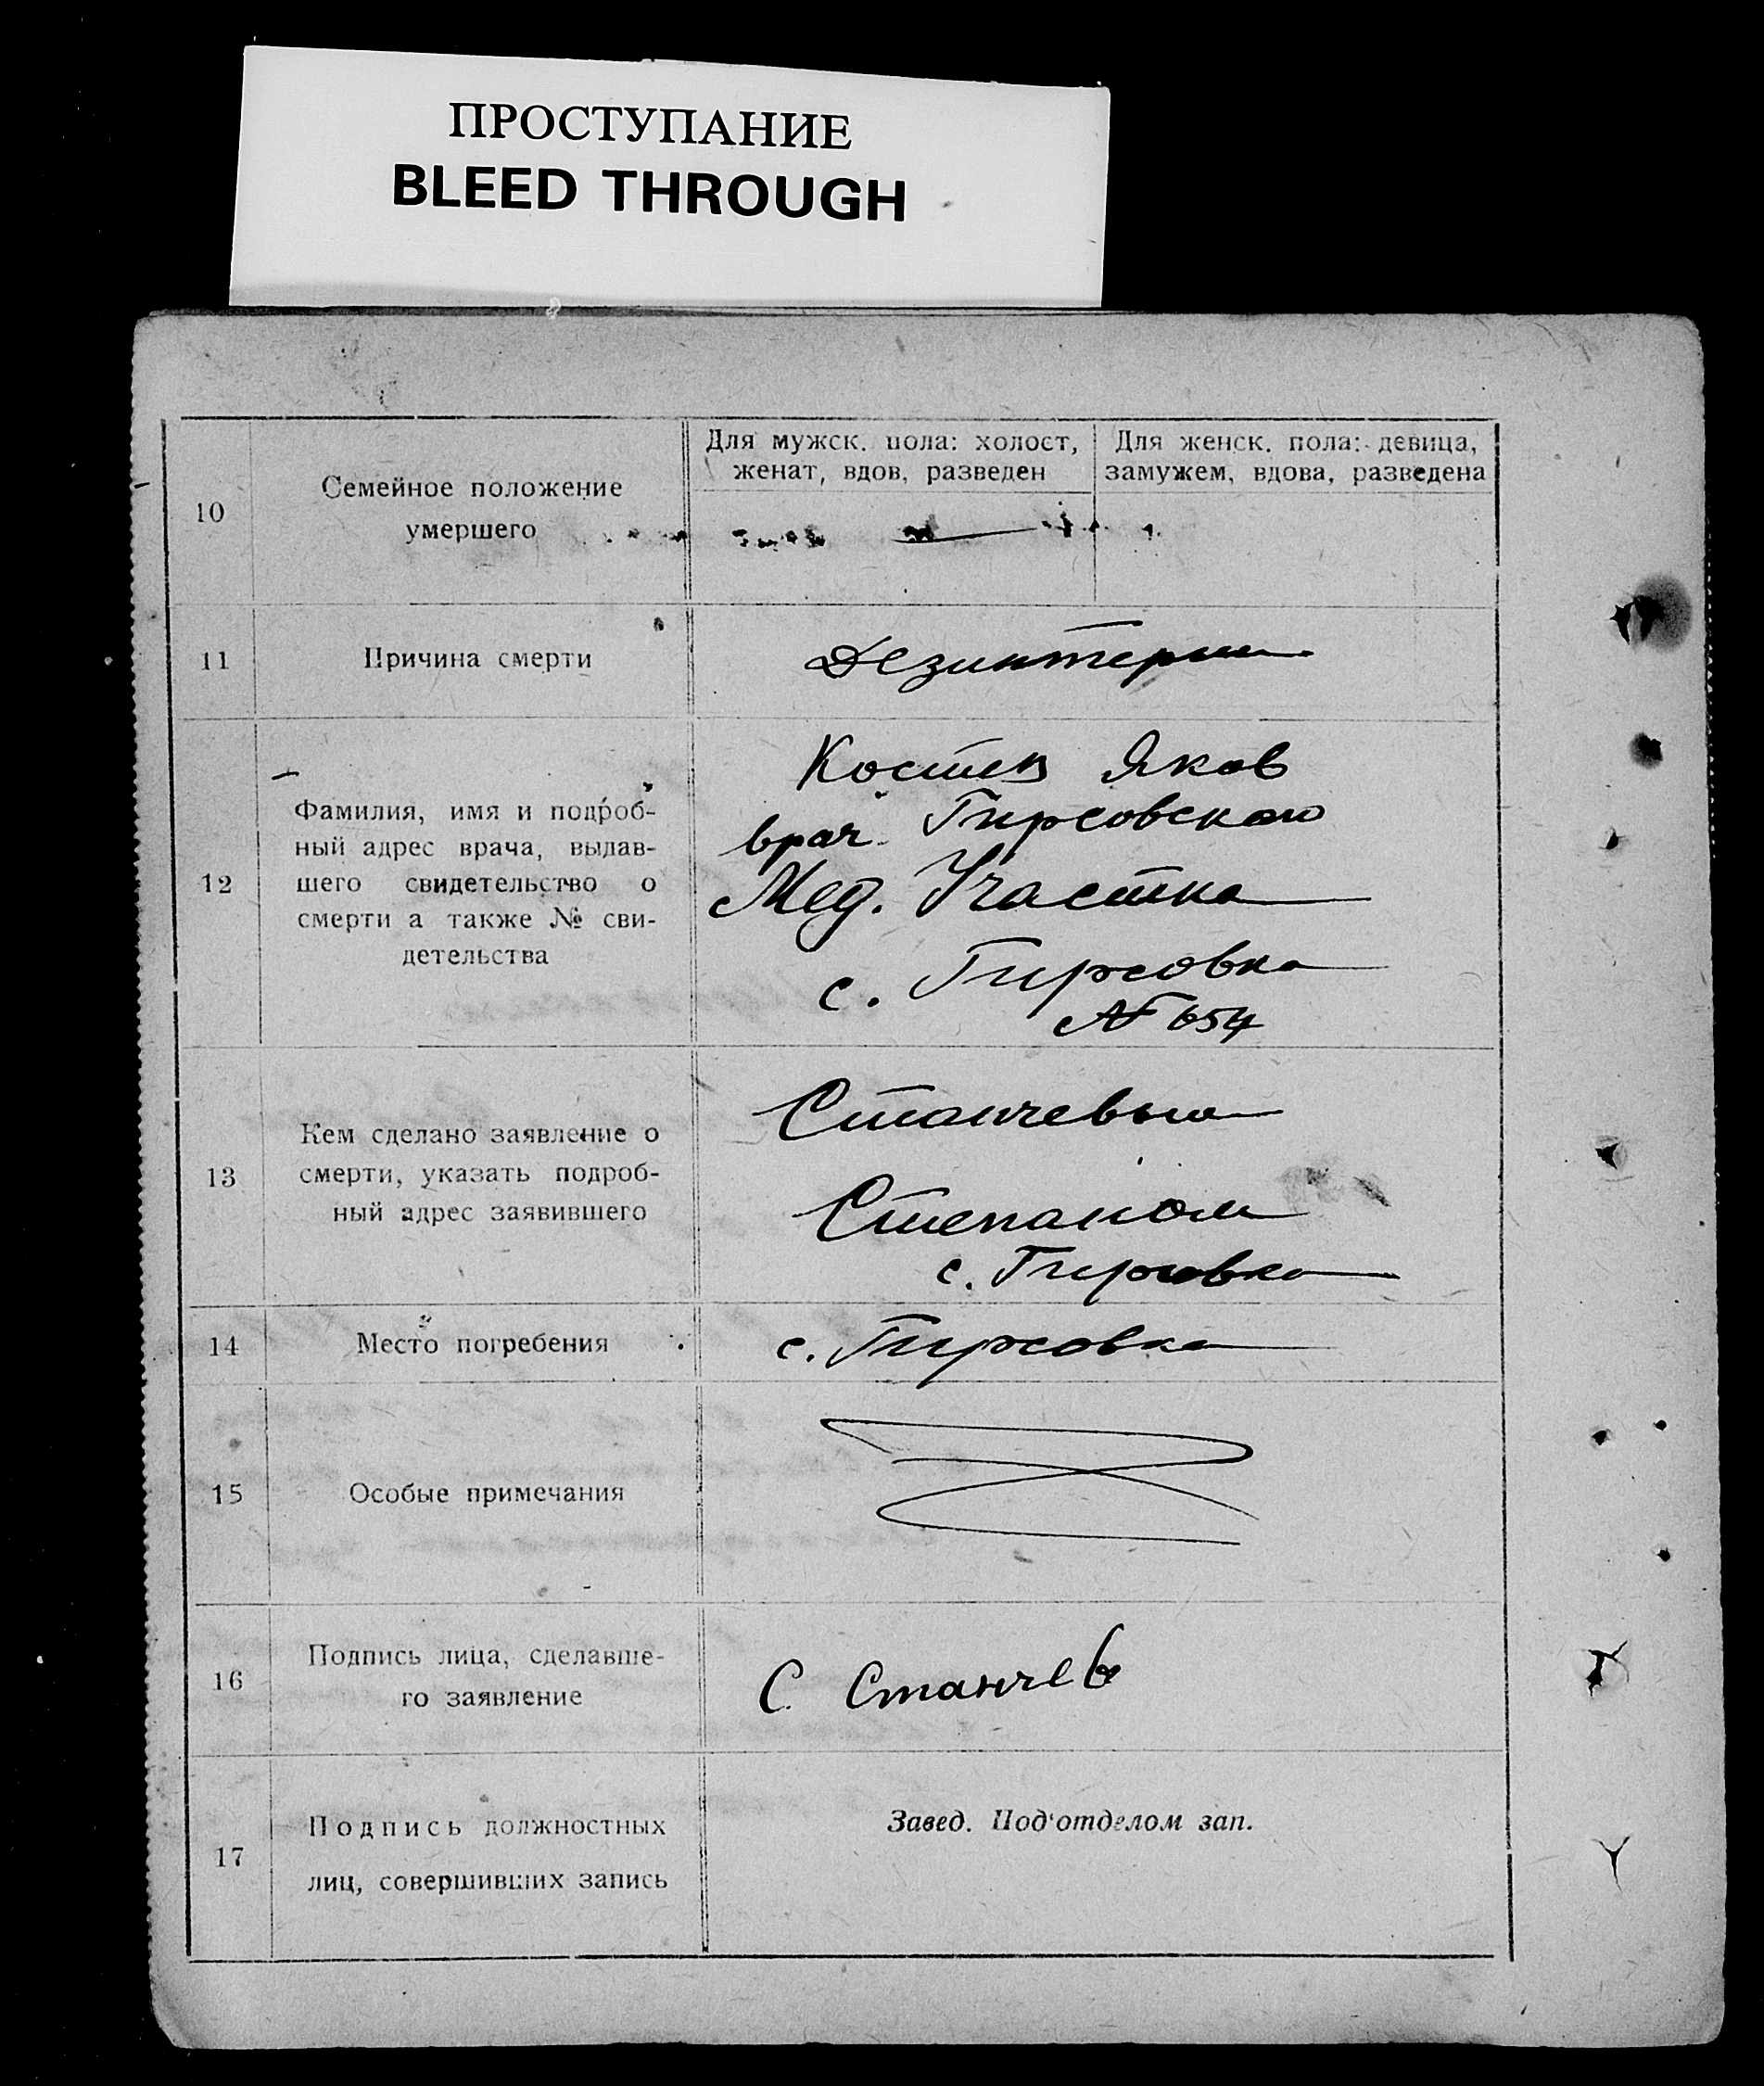 ПРОСТУПАНИЕ
BLEED THROUGH
10
Семейное положение
умершего
Для мужск. пола: холост,
женат, вдов, разведен
Для женск. пола: девица,
замужем, вдова, разведена
11
Причина смерти
Дезинтерия
12
Фамилия, имя и подроб-
ный адрес врача, выдав-
шего свидетельство о
смерти а также № сви-
детельства
Костев Яков
врач Гирсовского
Мед. Участка
с. Гирсовка
№ 654
13
Кем сделано заявление о
смерти, указать подроб-
ный адрес заявившего
Станчевым
Степаном
с. Гирсовка
14
Место погребения
с. Гирсовка
15
Особые примечания
16
Подпись лица, сделавше-
го заявление
С Станчев
17
Подпись должностных
лиц, совершивших запись
Завед. Под'отделом зап.